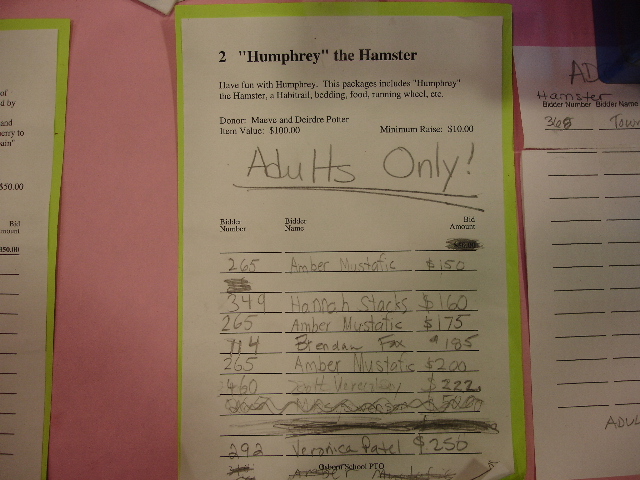 2 "Humphrey" the Hamster
Have fun with Humphrey. This packages includes "Humphrey"
the Hamster, a Habitrail, bedding, food, running wheel, etc.
Donor: Maeve and Deirdre Potter
Item Value: $100.00 Minimum Raise: $10.00
Adults Only!
Bidder Number Bidder Name Bid Amount
265 Amber Mustafic $150
349 Hannah Stacks $160
265 Amber Mustafic $175
714 Brendan Fox $185
265 Amber Mustafic $200
460 $222
292 Veronica Patel $250
Osborn School PTO
of
d by
and
$50.00
Bid
AD
Hamster
Bidder Number Bidder Name
368
ADUL